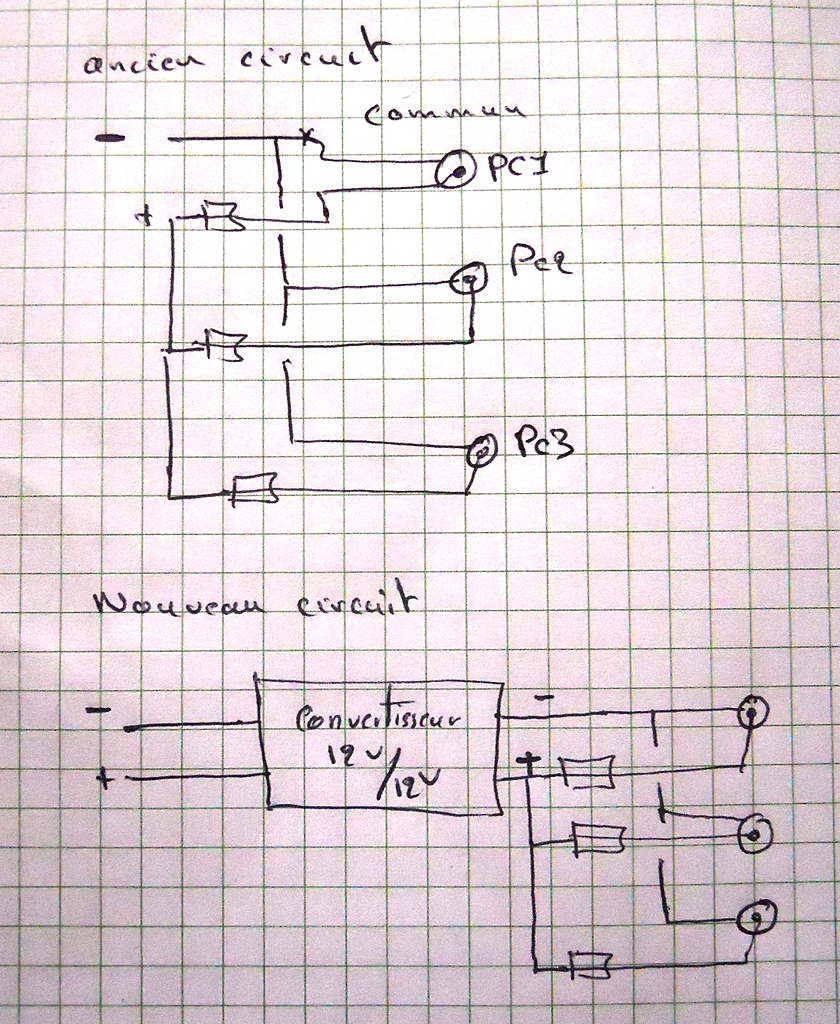 ancien circuit
commun
-
PC1
+
Pc2
Pc3
Nouveau circuit
-
-
Convertisseur
12V
/12V
+
+